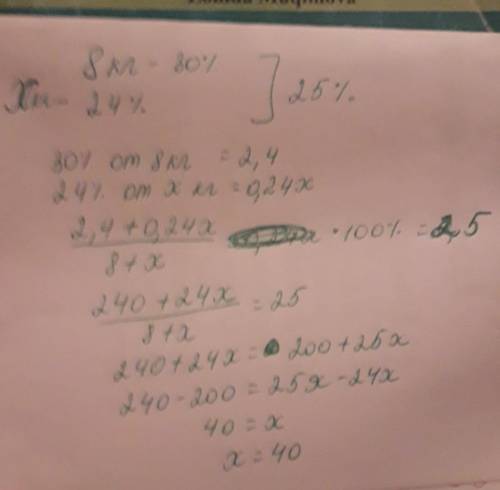 8 кг - 30%
X кг - 24% ] 25%.
30% от 8 кг = 2,4
24% от x кг = 0,24x
2,4 + 0,24x
8 + x
· 100% = 2,5
240 + 24x
8 + x
= 25
240 + 24x = 200 + 25x
240 - 200 = 25x - 24x
40 = x
x = 40